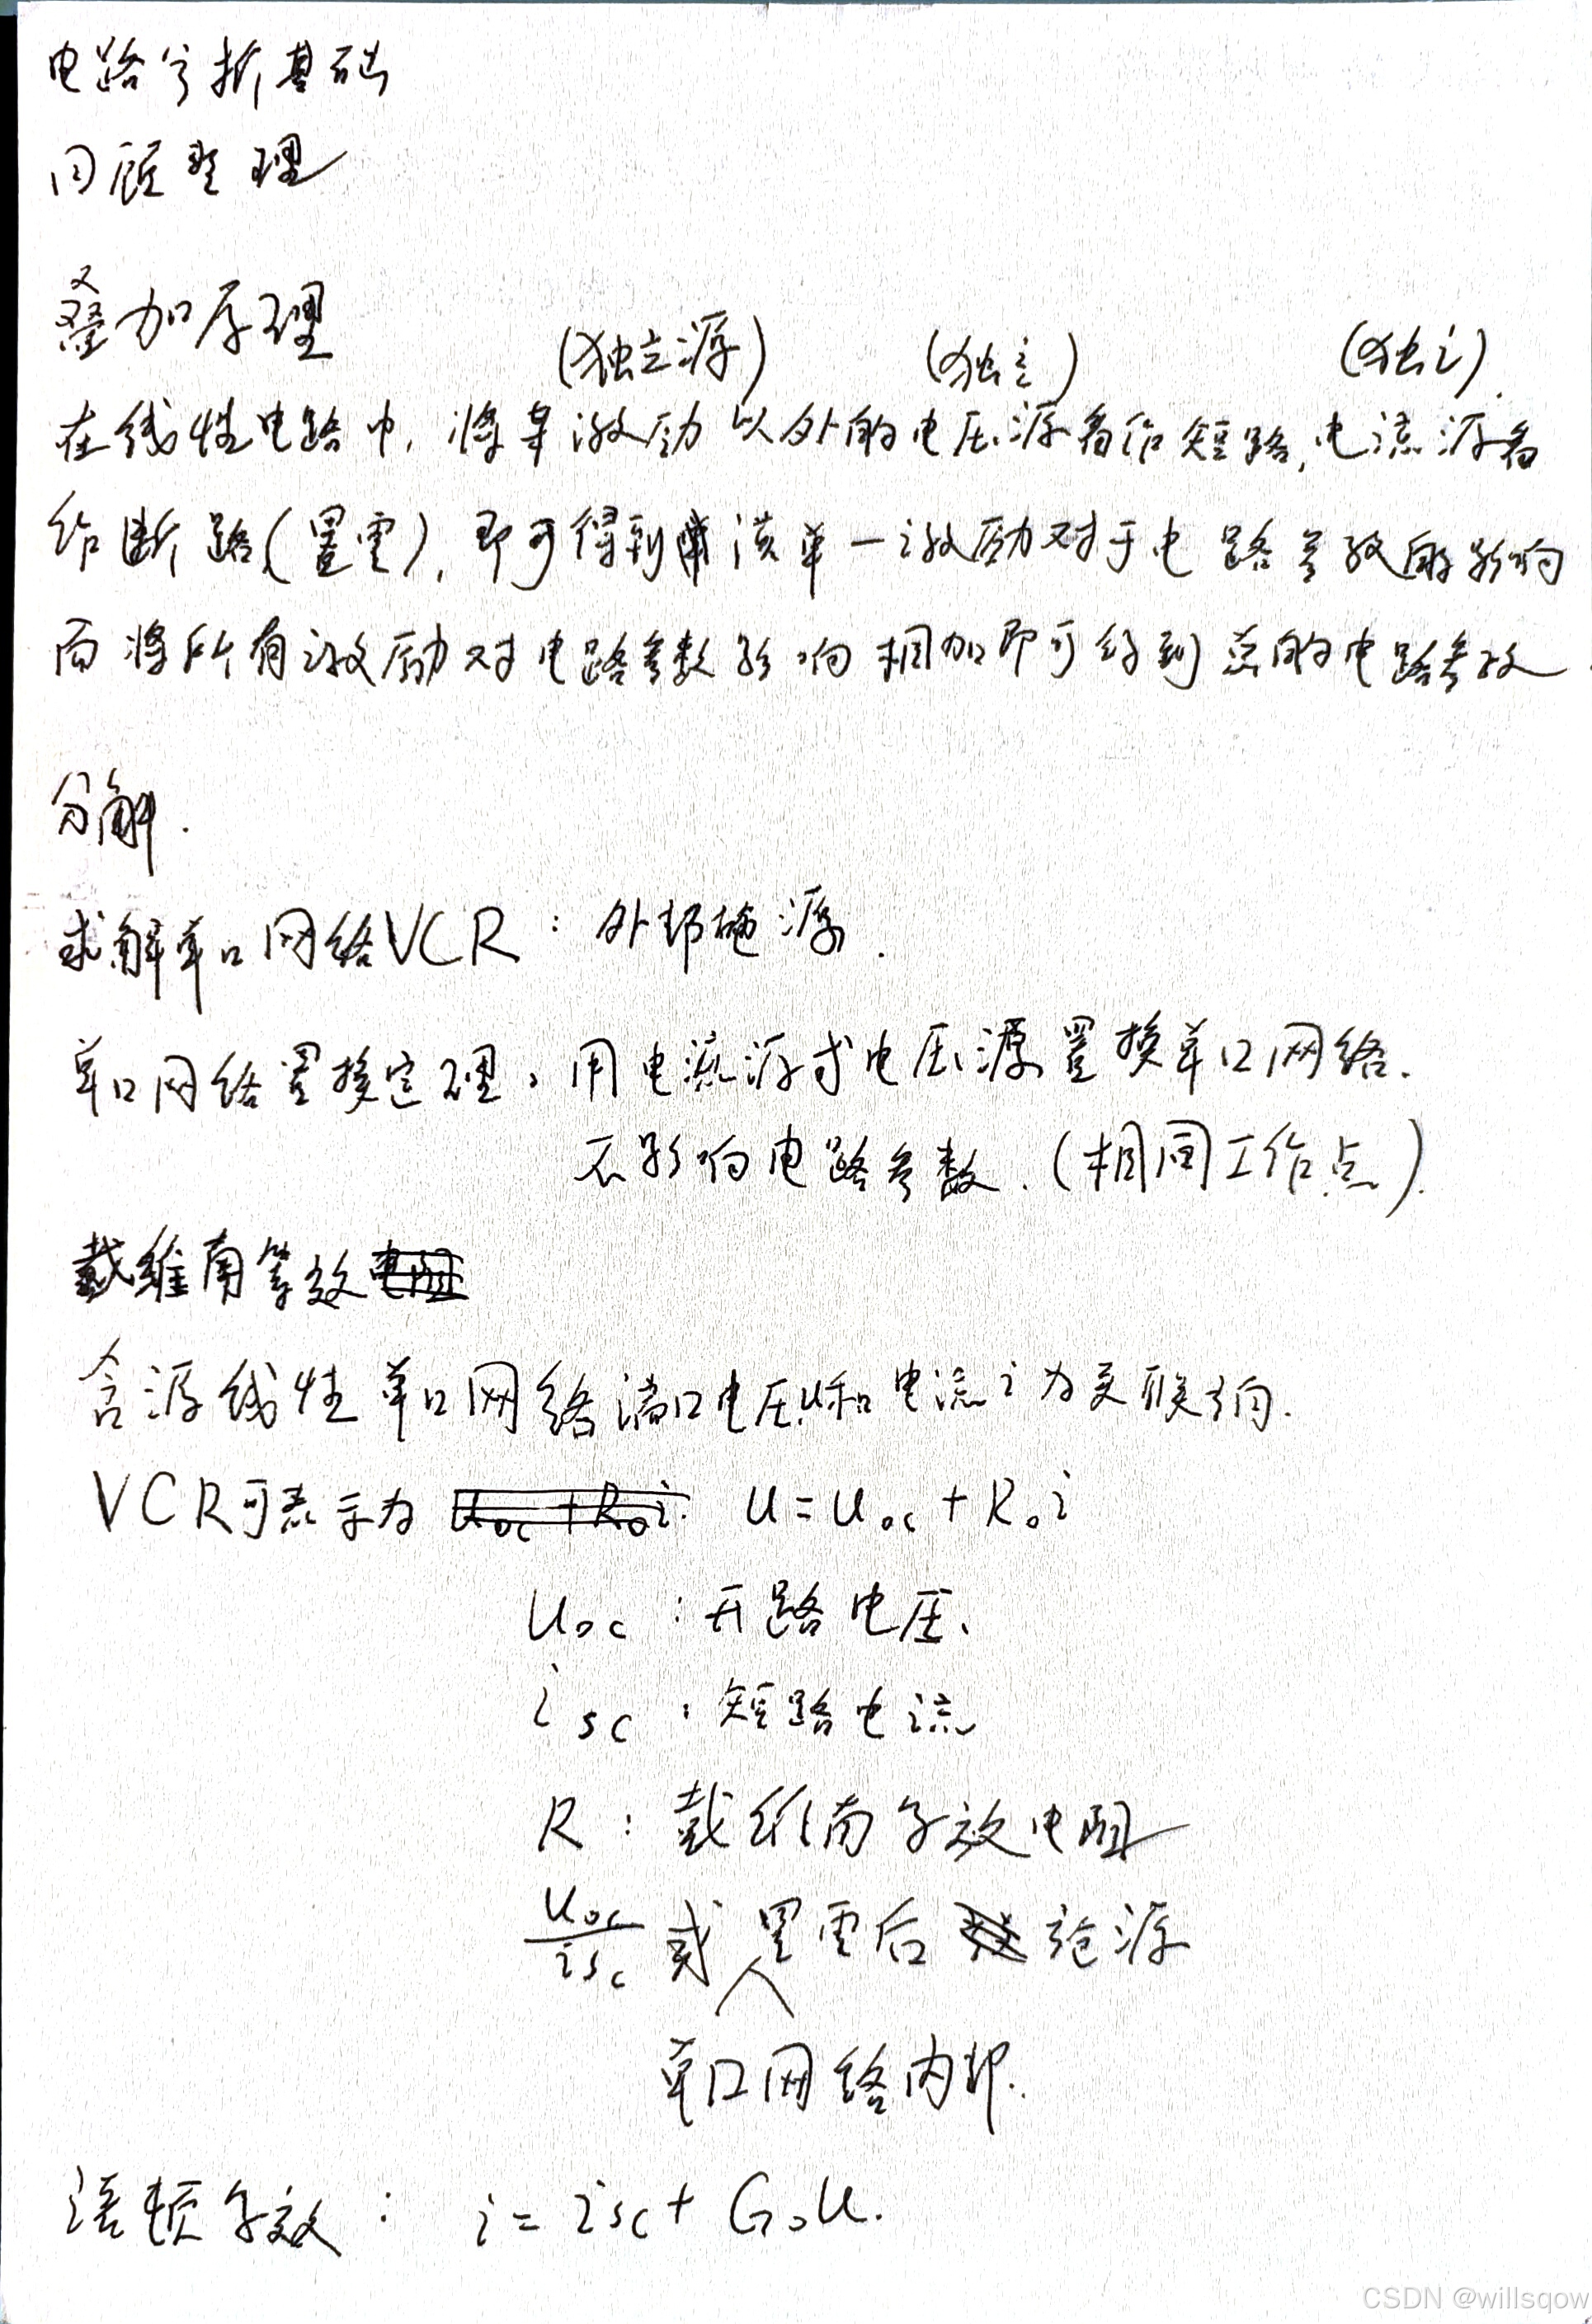 电路分析基础
回顾整理
叠加原理
(独立源) (独立) (独立)
在线性电路中, 将某激励以外的电压源看作短路, 电流源看
作断路(置零), 即可得到该单一激励对于电路参数的影响
而将所有激励对电路参数影响相加即可得到总的电路参数.
分解.
求解单口网络VCR: 外部施源.
单口网络置换定理: 用电流源或电压源置换单口网络.
不影响电路参数. (相同工作点).
戴维南等效
含源线性单口网络端口电压u和电流i为关联方向.
VCR可表示为 u=uoc+R₀i
uoc: 开路电压.
isc: 短路电流
R: 戴维南等效电阻
uoc/isc 或置零后 施源
单口网络内部.
诺顿等效: i=isc+G₀u.
CSDN @willsqow